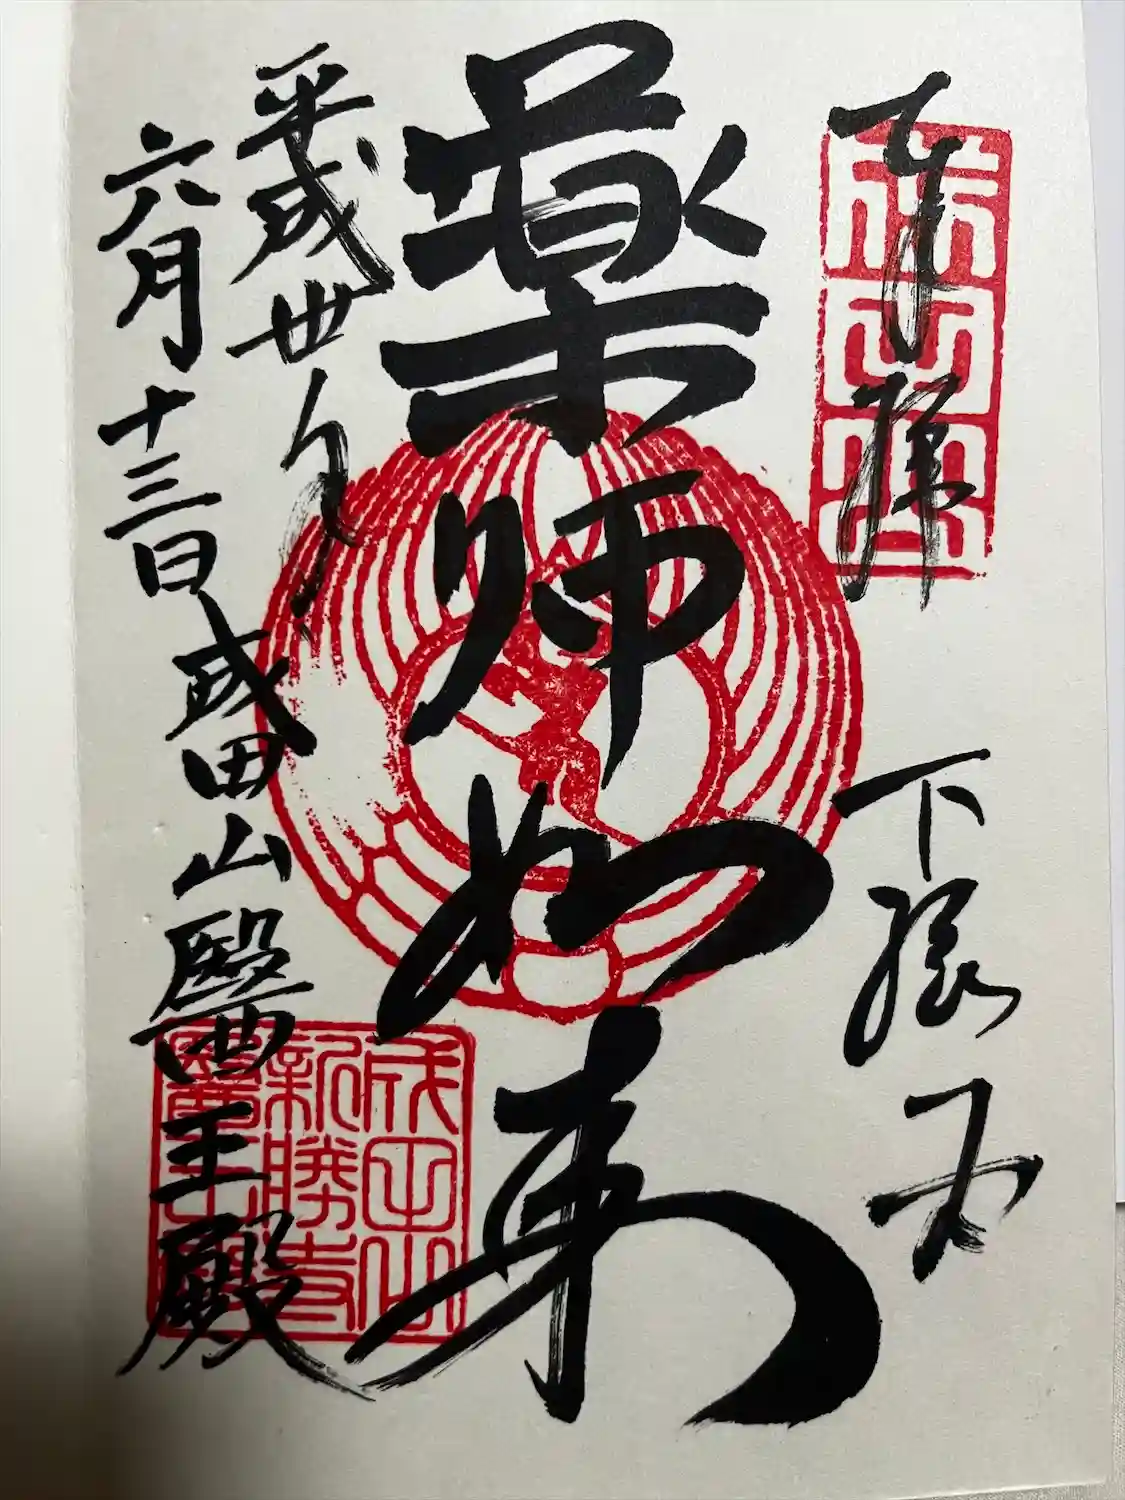 奉拝
下総国
薬師如来
平成卅年
六月十三日
成田山醫王殿
成田山
新勝寺
醫王殿